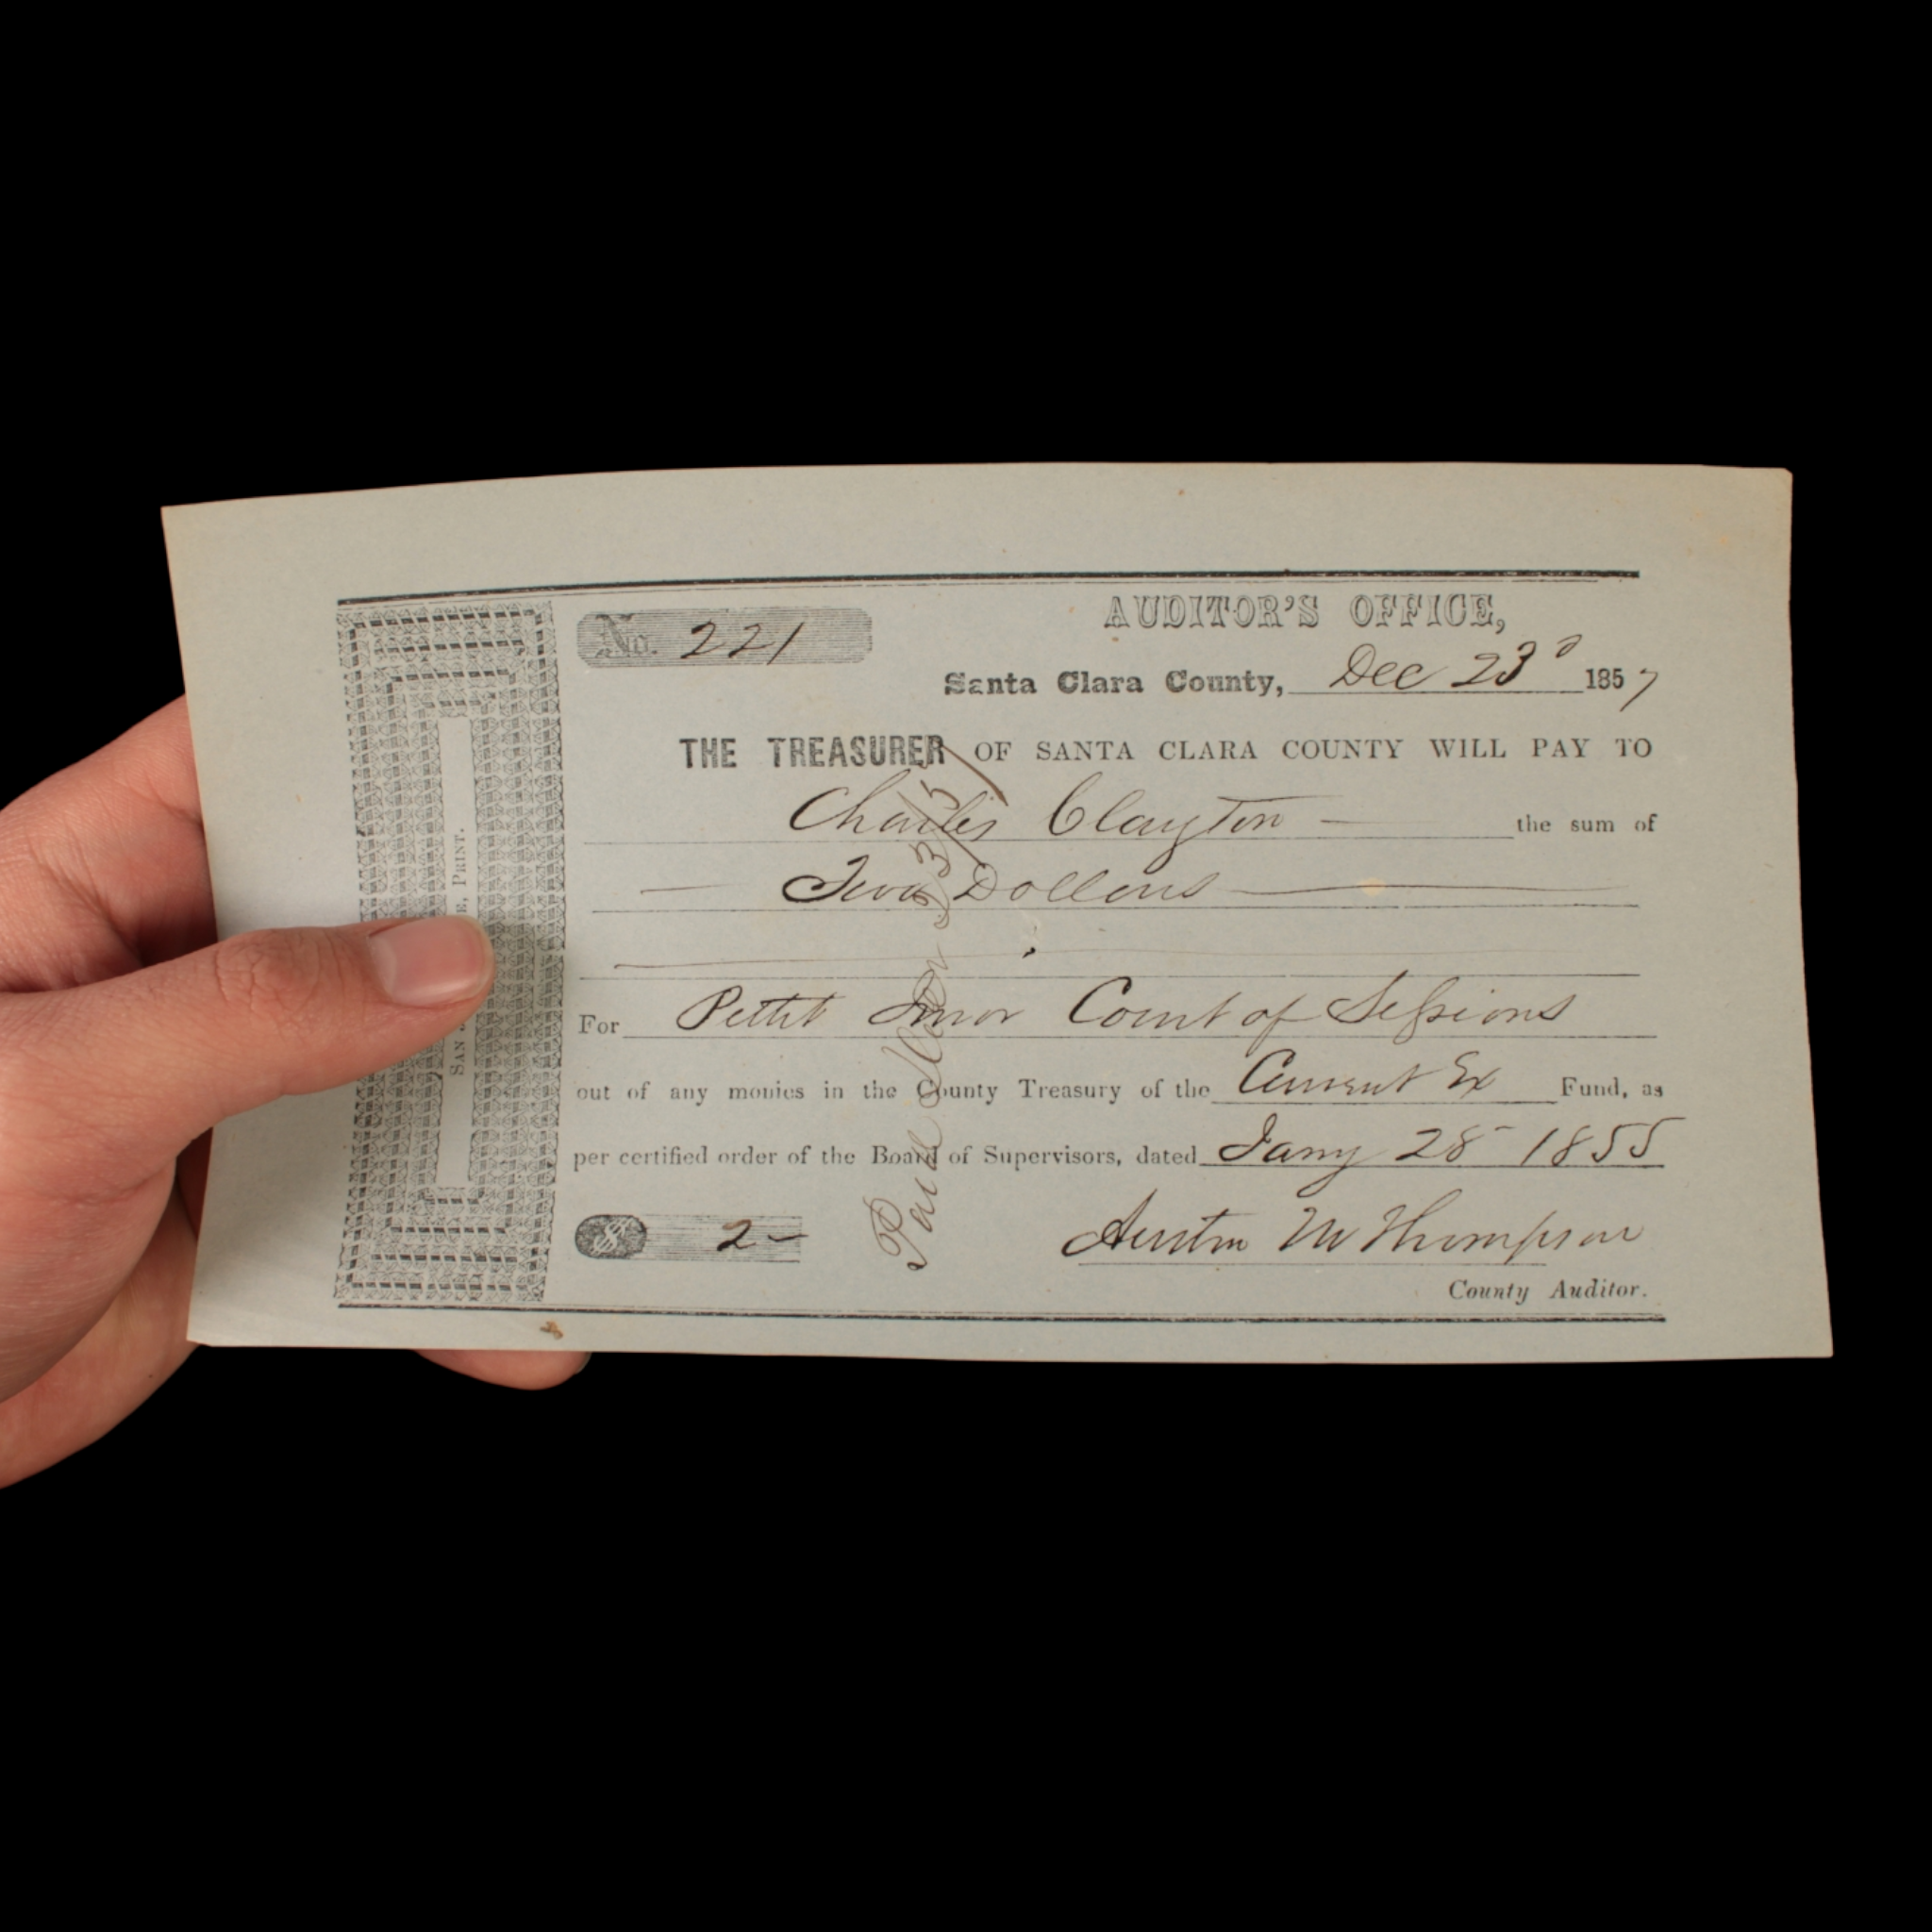 No. 221
AUDITOR'S OFFICE,
Santa Clara County, Dec 23d 1857
THE TREASURER OF SANTA CLARA COUNTY WILL PAY TO
Charles Clayton the sum of
Two Dollars
For Pettit Juror Court of Sessions
out of any monies in the County Treasury of the Current Ex Fund, as
per certified order of the Board of Supervisors, dated Jany 28 1855
$ 2-
Austin M Thompson
County Auditor.
SAN E, PRINT.
Paid